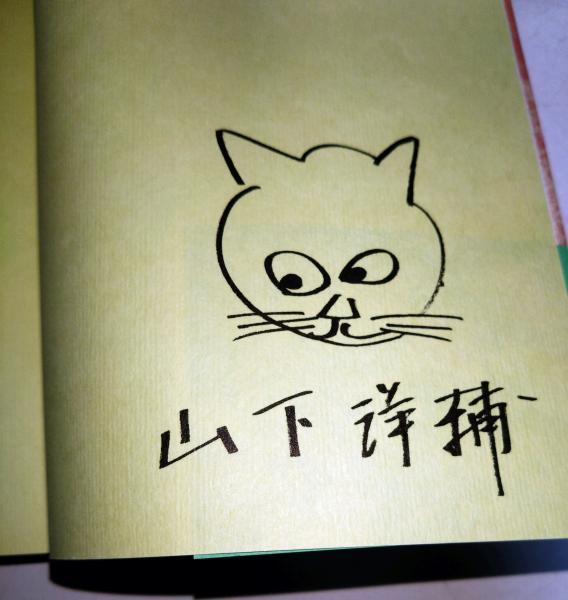 山下洋輔